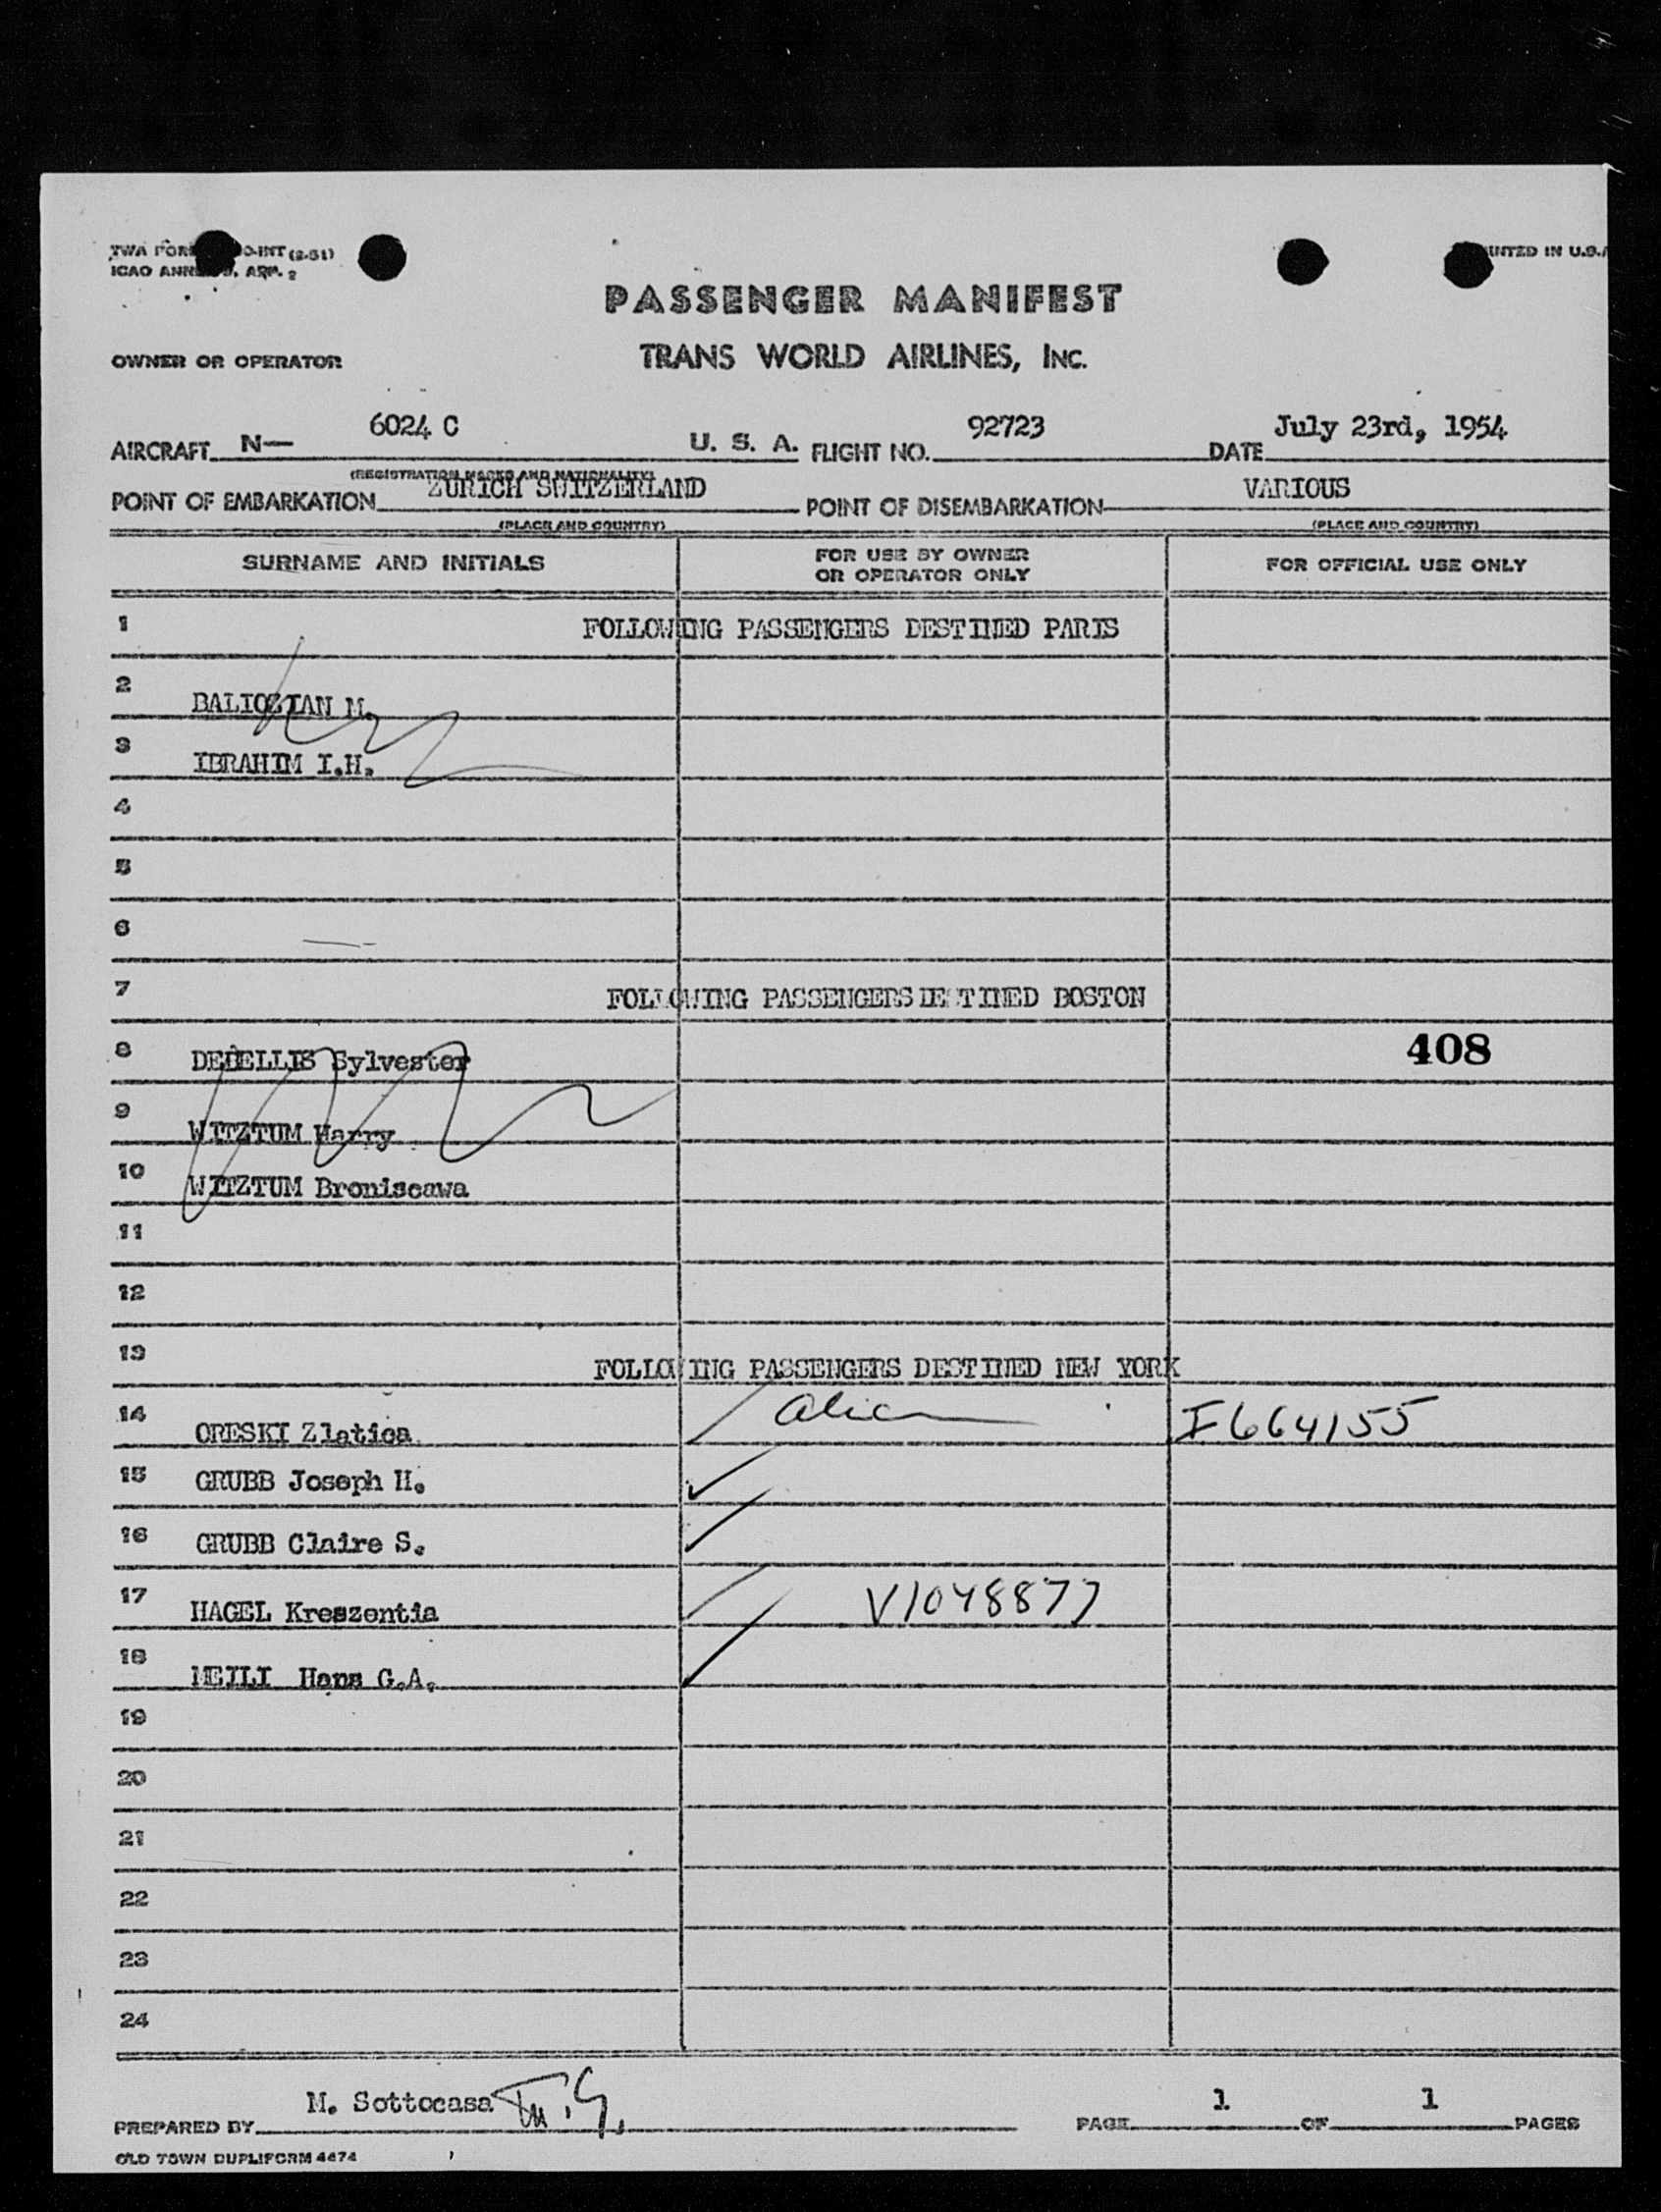 TWA FORM O-INT (2-51)
ICAO ANNEX 9, APP. 2
PRINTED IN U.S.A
PASSENGER MANIFEST
OWNER OR OPERATOR TRANS WORLD AIRLINES, INC.
AIRCRAFT N— 6024 C U. S. A. FLIGHT NO. 92723 DATE July 23rd, 1954
(REGISTRATION MARKS AND NATIONALITY)
POINT OF EMBARKATION ZURICH SWITZERLAND POINT OF DISEMBARKATION VARIOUS
(PLACE AND COUNTRY) (PLACE AND COUNTRY)
SURNAME AND INITIALS FOR USE BY OWNER OR OPERATOR ONLY FOR OFFICIAL USE ONLY
1 FOLLOWING PASSENGERS DESTINED PARIS
2 BALIOZIAN M.
3 IBRAHIM I.H.
4
5
6
7 FOLLOWING PASSENGERS DESTINED BOSTON
8 DEBELLIS Sylvester 408
9 WITZTUM Harry
10 WITZTUM Broniscawa
11
12
13 FOLLOWING PASSENGERS DESTINED NEW YORK
14 ORESKI Zlatica alien I664155
15 GRUBB Joseph H.
16 GRUBB Claire S.
17 HAGEL Kreszentia V1048877
18 MEILI Hans G.A.
19
20
21
22
23
24
PREPARED BY M. Sottocasa PAGE 1 OF 1 PAGES
OLD TOWN DUPLIFORM 4474